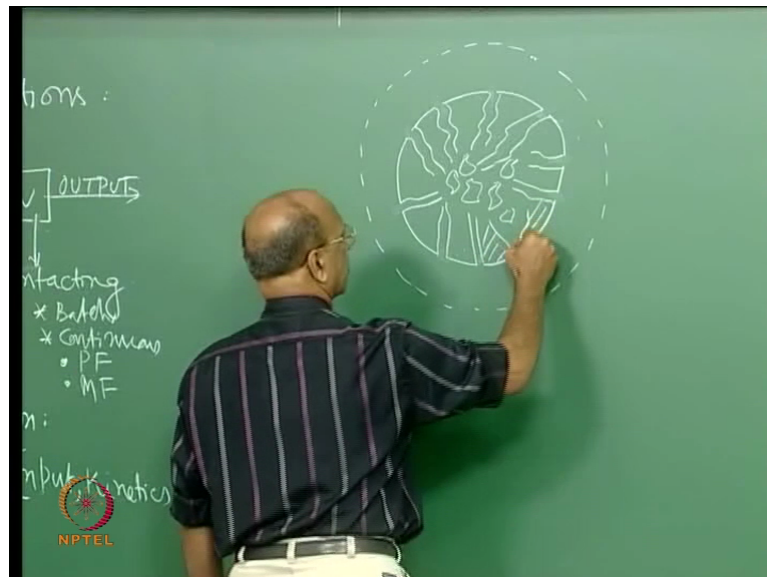 tions :
OUTPUTS
ntacting
* Batch
* Continuous
• PF
• MF
n :
nput, Kinetics
NPTEL